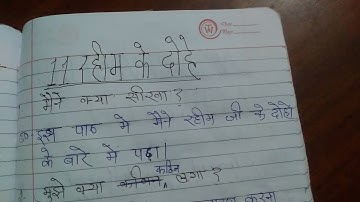 11 रहीम के दोहे
मैंने क्या सीखा?
इस पाठ में मैंने रहीम जी के दोहों
के बारे में पढ़ा।
मुझे क्या कठिन लगा?
करना